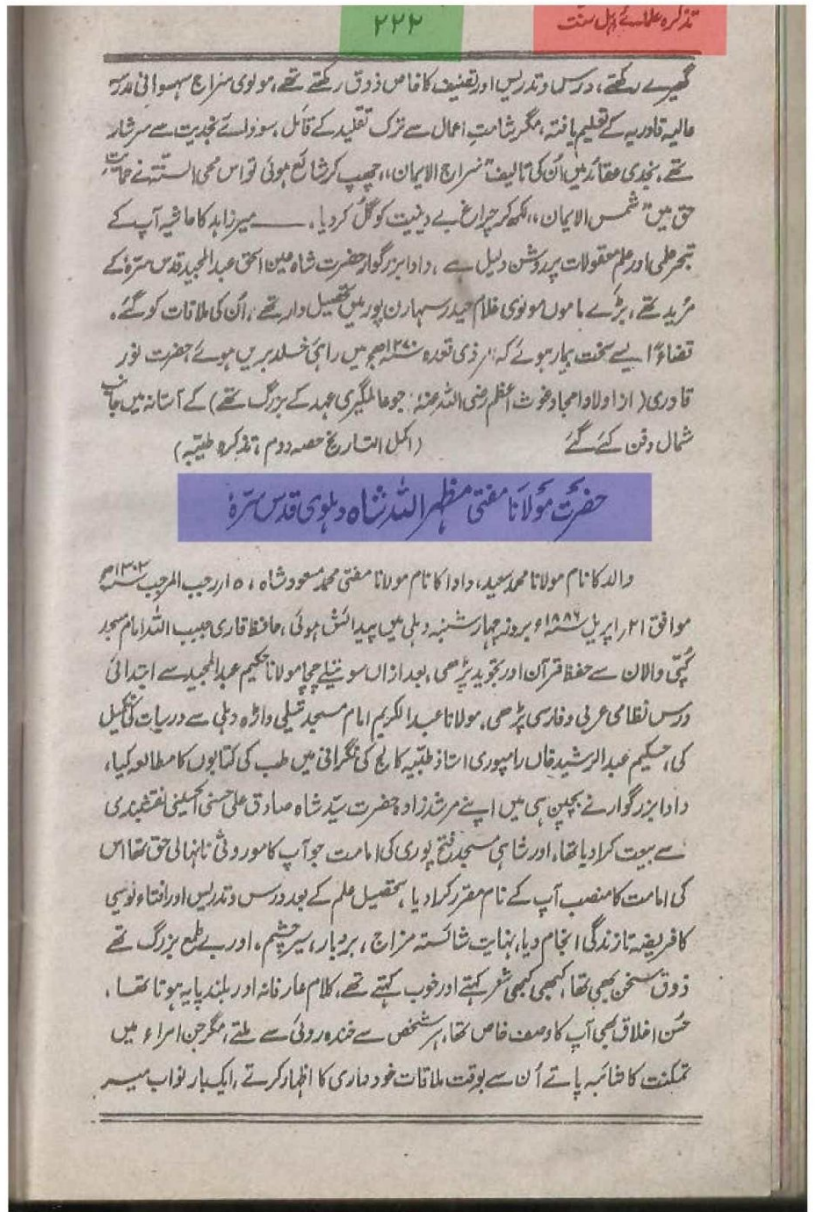 تذکرہ علمائے اہل سنت
۲۲۲
گھیرے رکھتے، درس و تدریس اور تصنیف کا خاص ذوق رکھتے تھے، مولوی سراج سہسوانی مدرسہ
عالیہ قادریہ کے تعلیم یافتہ، مگر شامتِ اعمال سے ترک تقلید کے قائل، سودائے نجدیت سے سرشار
تھے، نجدی عقائد میں اُن کی تالیف "سراج الایمان" چھپ کر شائع ہوئی تو اس محی السنۃ نے حمایتِ
حق میں "شمس الایمان" لکھ کر چراغ بے دینیت کو گُل کر دیا، ــــــ میر زاہد کا حاشیہ آپ کے
تبحر علمی اور علم معقولات پر روشن دلیل ہے، دادا بزرگوار حضرت شاہ عین الحق عبدالمجید قدس سرہٗ کے
مُرید تھے، بڑے ماموں مولوی غلام حیدر سہارن پور میں تحصیل دار تھے، اُن کی ملاقات کو گئے،
قضاءً ایسے سخت بیمار ہوئے کہ ذی قعدہ ۱۲۷۰ھ میں راہئ خلد بریں ہوئے حضرت نور
قادری (از اولاد امجاد غوث اعظم رضی اللہ عنہٗ جو عالمگیری عہد کے بزرگ تھے) کے آستانہ میں جانب
شمال دفن کئے گئے (اکمل التاریخ حصہ دوم، تذکرہ طیبہ)
حضرت مولانا مفتی مظہر اللہ شاہ دہلوی قدس سرہٗ
والد کا نام مولانا محمد سعید، دادا کا نام مولانا مفتی محمد مسعود شاہ، ۱۵ رجب المرجب ۱۳۰۳ھ
موافق ۲۱ اپریل ۱۸۸۶ء بروز چہار شنبہ دہلی میں پیدائش ہوئی، حافظ قاری حبیب اللہ امام مسجد
کپّی والان سے حفظ قرآن اور تجوید پڑھی، بعد ازاں سوتیلے چچا مولانا حکیم عبدالمجید سے ابتدائی
درس نظامی عربی و فارسی پڑھی، مولانا عبدالکریم امام مسجد تیلی واڑہ دہلی سے درسیات کی تکمیل
کی، حکیم عبدالرشید خاں رامپوری استاذ طبّیہ کالج کی نگرانی میں طب کی کتابوں کا مطالعہ کیا،
دادا بزرگوار نے بچپن ہی میں اپنے مرشد زادہ حضرت سیّد شاہ صادق علی حسنی الحسینی نقشبندی
سے بیعت کرا دیا تھا، اور شاہی مسجد فتح پوری کی امامت جو آپ کا موروثی نانہالی حق تھا اس
کی امامت کا منصب آپ کے نام مقرر کرا دیا، تحصیل علم کے بعد درس و تدریس اور افتاء نویسی
کا فریضہ تا زندگی انجام دیا، نہایت شائستہ مزاج، بردبار، سیر چشم، اور بے طمع بزرگ تھے
ذوق سخن بھی تھا، کبھی کبھی شعر کہتے اور خوب کہتے تھے، کلام عارفانہ اور بلند پایہ ہوتا تھا،
حُسن اخلاق بھی آپ کا وصف خاص تھا، ہر شخص سے خندہ روئی سے ملتے، مگر جن امراء میں
تمکنت کا شائبہ پاتے اُن سے بوقت ملاقات خود داری کا اظہار کرتے، ایک بار نواب میر